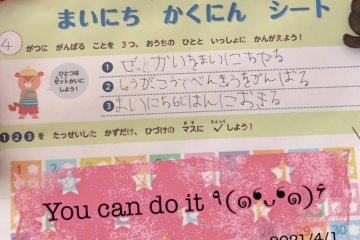 まいにち かくにん シート
4 がつに がんばる ことを 3つ、おうちの ひとと いっしょに かんがえよう!
ひとつは
ゼッケンに
しよう!
1
2 しょうがっこうでべんきょうをがんばる
3 まいにち6じはんにおきる
1 2 3 を たっせいした かずだけ、ひづけの マスに しよう!
You can do it ٩(๑❛ᴗ❛๑)۶
2021/4/1
30